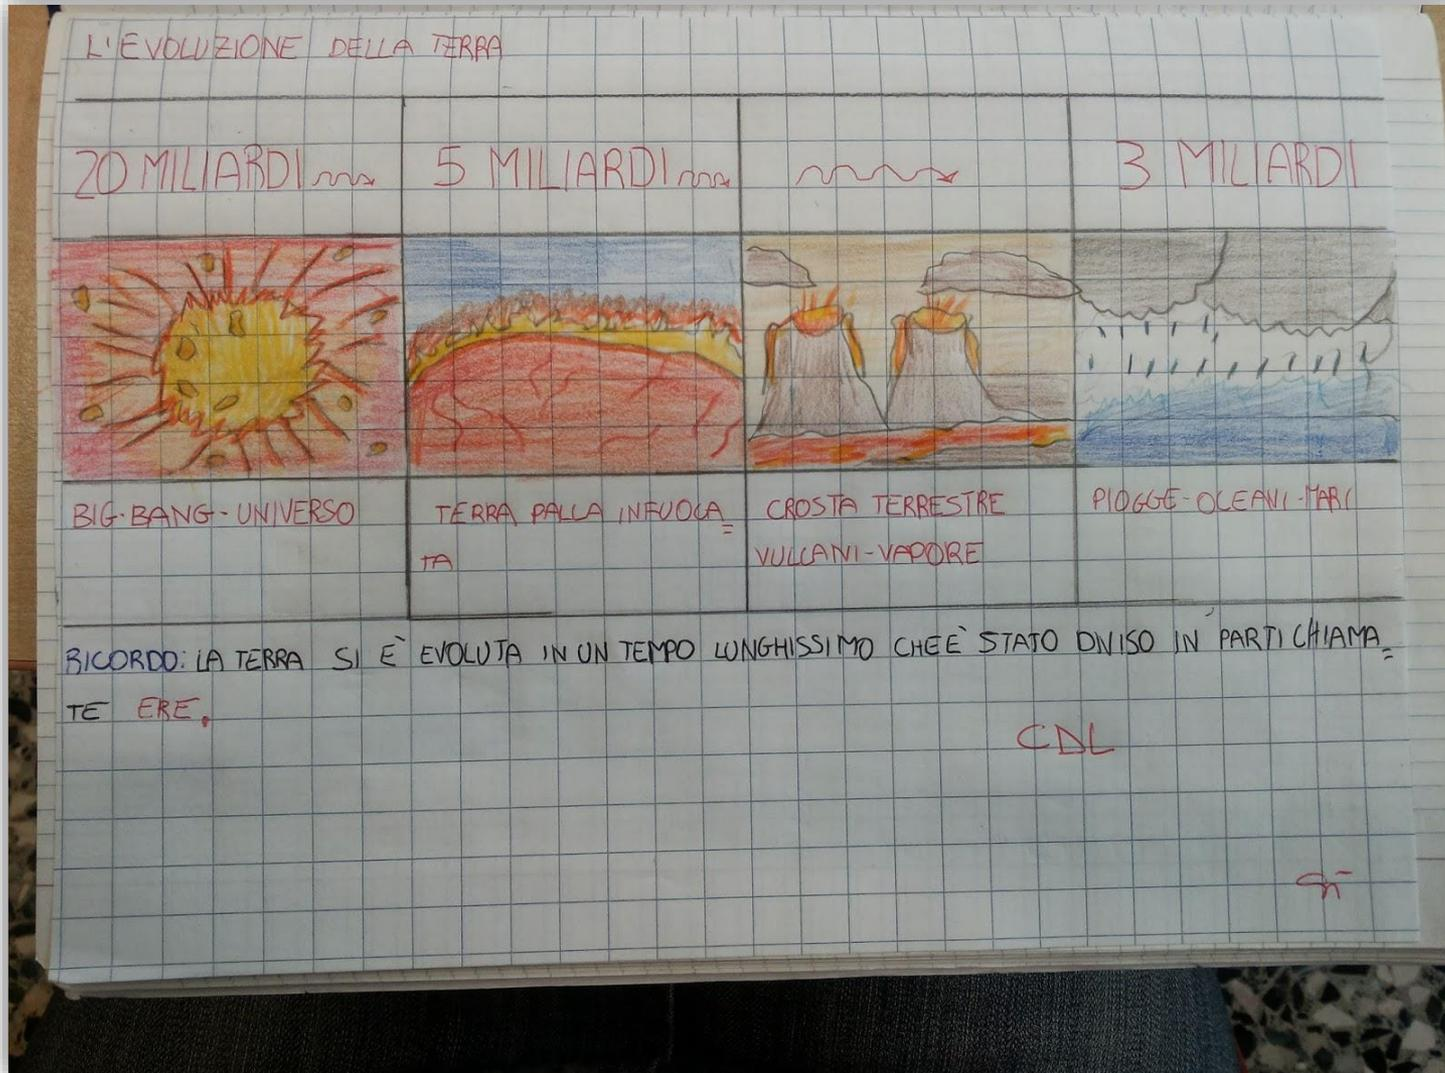 L'EVOLUZIONE DELLA TERRA
20 MILIARDI
5 MILIARDI
3 MILIARDI
BIG-BANG-UNIVERSO
TERRA PALLA INFUOCA=
TA
CROSTA TERRESTRE
VULCANI-VAPORE
PIOGGE-OCEANI-MARI
RICORDO: LA TERRA SI È EVOLUTA IN UN TEMPO LUNGHISSIMO CHE È STATO DIVISO IN PARTI CHIAMA=
TE ERE.
CDL